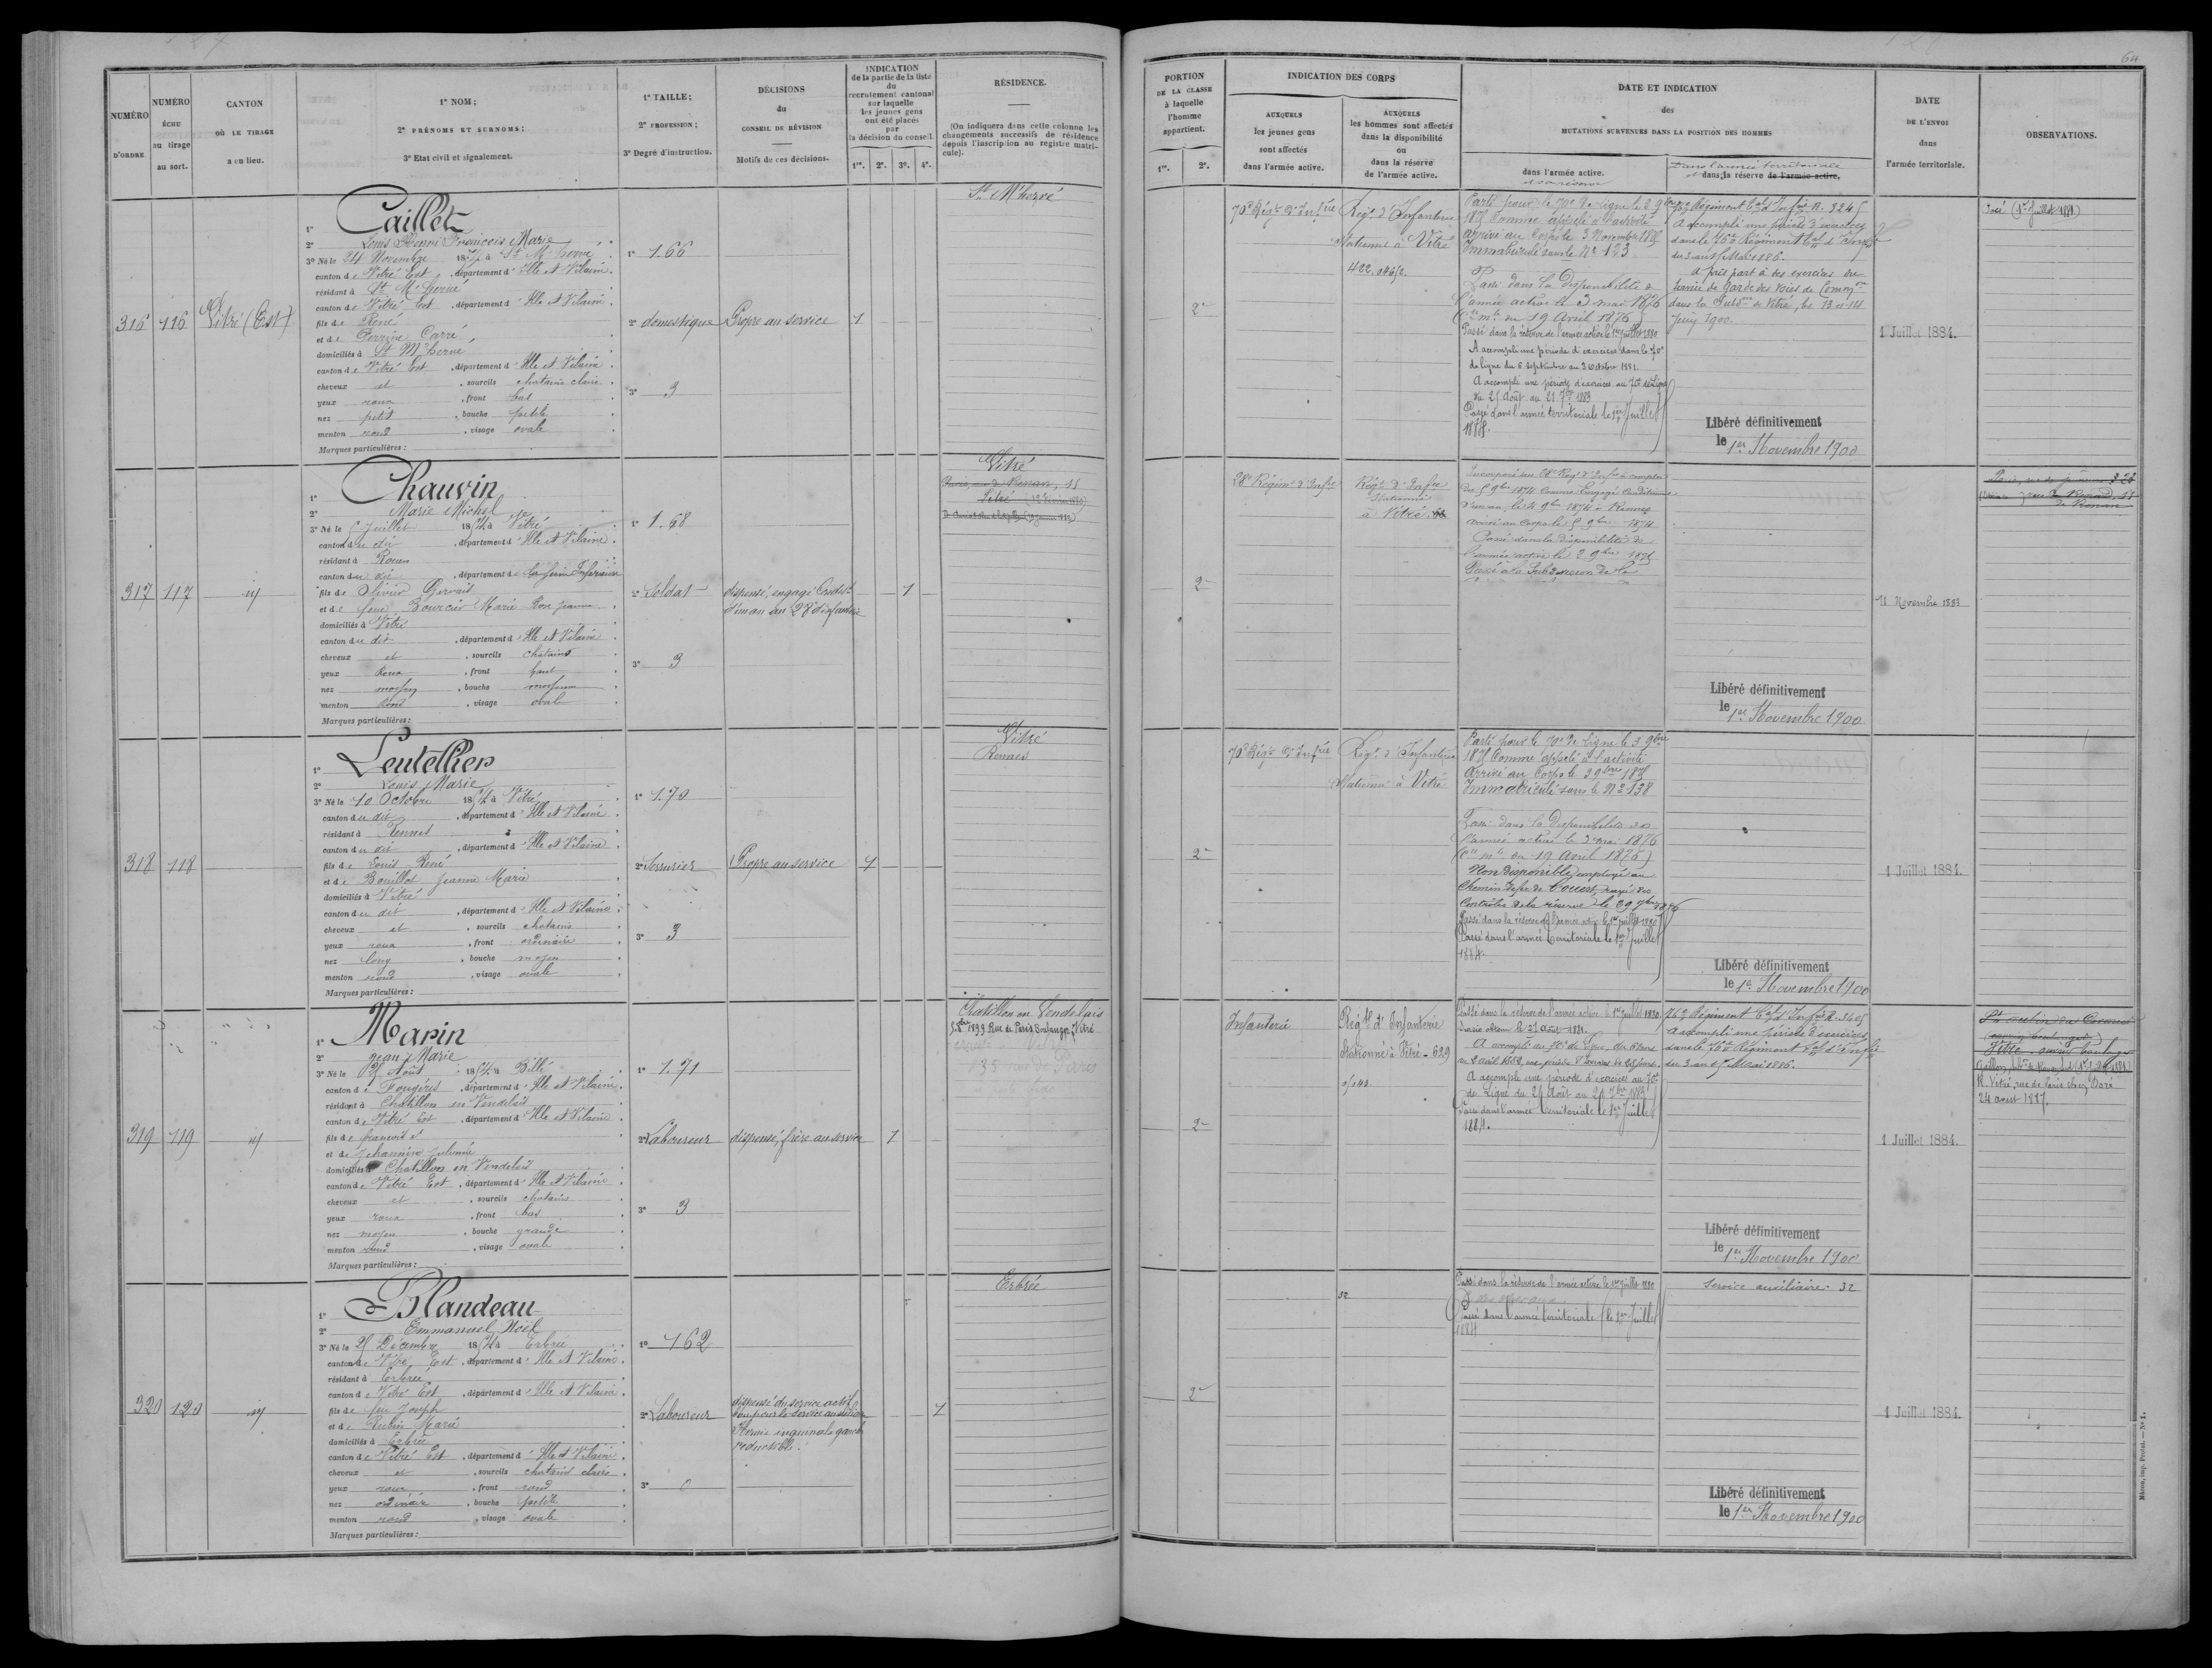 64
NUMÉRO D'ORDRE
NUMÉRO ÉCHU au tirage au sort.
CANTON OÙ LE TIRAGE a eu lieu.
1° NOM;
2° PRÉNOMS ET SURNOMS;
3° Etat civil et signalement.
1° TAILLE;
2° PROFESSION;
3° Degré d'instruction.
DÉCISIONS du CONSEIL DE RÉVISION
Motifs de ces décisions.
INDICATION de la partie de la liste du recrutement cantonal sur laquelle les jeunes gens ont été placés par la décision du conseil.
1re. 2e. 3e. 4e.
RÉSIDENCE.
(On indiquera dans cette colonne les changements successifs de résidence depuis l'inscription au registre matricule).
PORTION DE LA CLASSE à laquelle l'homme appartient.
1re. 2e.
INDICATION DES CORPS
AUXQUELS les jeunes gens sont affectés dans l'armée active.
AUXQUELS les hommes sont affectés dans la disponibilité ou dans la réserve de l'armée active.
DATE ET INDICATION des MUTATIONS SURVENUES DANS LA POSITION DES HOMMES
dans l'armée active.
et sa réserve
Dans l'armée territoriale
et dans la réserve de l'armée active.
DATE DE L'ENVOI dans l'armée territoriale.
OBSERVATIONS.
316
116
Vitré (Est)
1° Caillet
2° Louis Henri François Marie
3° Né le 24 Novembre 1854 à St M'hervé
canton de Vitré Est, département d'Ille et Vilaine.
résidant à St M'hervé
canton de Vitré Est, département d'Ille et Vilaine.
fils de René
et de Perrine Carré
domiciliés à St M'hervé
canton de Vitré Est, département d'Ille et Vilaine.
cheveux et, sourcils chatains clairs.
yeux roux, front bas.
nez petit, bouche petite.
menton rond, visage ovale.
Marques particulières:
1° 1.66
2° domestique
3° 3
Propre au service
1
St M'hervé
2e
70e Régt d'Infrie
Régt d'Infanterie
stationné à Vitré
422
Parti pour le 70e de ligne le 3 9bre
1875 Comme appelé à l'activité
arrivé au Corps le 3 Novembre 1875
Immatriculé sous le No 123
Passé dans la disponibilité de
l'armée active le 3 mai 1876
(Cre mle du 19 Avril 1876)
Passé dans la réserve de l'armée active le 1er Juillet 1880
A accompli une période d'exercices dans le 70e
de ligne du 6 Septembre au 3 Octobre 1881.
A accompli une période d'exercices au 70e de Ligne
du 25 Août au 21 7bre 1883
Passé dans l'armée territoriale le 1er Juillet
1884.
76e Régiment tal d'Infrie R. 3245
A accompli une période d'exercices
dans le 76e Régiment tal d'Infie
du 3 au 15 Mai 1886.
A pris part à des exercices du
service de garde des voies de Comon
dans la Subdon de Vitré, les 13 et 14
Juin 1900.
Libéré définitivement
le 1er Novembre 1900
1 Juillet 1884.
317
117
id
1° Chauvin
2° Marie Michel
3° Né le 5 Juillet 1854 à Vitré
canton du dit, département d'Ille et Vilaine.
résidant à Rouen
canton du dit, département de la Seine Inférieure
fils de Olivier Gervais
et de feue Bourcier Marie Rose Jeanne
domiciliés à Vitré
canton du dit, département d'Ille et Vilaine.
cheveux et, sourcils chatains
yeux Roux, front haut
nez moyen, bouche moyenne
menton Rond, visage ovale
Marques particulières:
1° 1.68
2° Soldat
3° 3
dispensé, engagé Condel
d'un an au 28e d'infanterie
1
Vitré
2e
28e Régiment d'Infie
Régt d'Infie
stationné
à Vitré
Incorporé au 28e Régt d'Infie à compter
du 5 9bre 1874 Comme Engagé Conditionnel
d'un an, le 4 9bre 1874 à Rennes
arrivé au Corps le 5 9bre 1874
Passé dans la disponibilité de
l'armée active le 2 9bre 1875
Passé à la Subdivision de la
11 Novembre 1883
Libéré définitivement
le 1er Novembre 1900
318
118
1° Leutellier
2° Louis Marie
3° Né le 10 Octobre 1854 à Vitré
canton du dit, département d'Ille et Vilaine
résidant à Rennes
canton du dit, département d'Ille et Vilaine.
fils de Louis René
et de Bouillot Jeanne Marie
domiciliés à Vitré
canton du dit, département d'Ille et Vilaine.
cheveux et, sourcils chatains
yeux roux, front ordinaire
nez long, bouche moyen
menton rond, visage ovale
Marques particulières:
1° 1.70
2° Serrurier
3° 3
Propre au service
1
Vitré
Rennes
2e
70e Régt d'Infrie
Régt d'Infanterie
stationné à Vitré
Parti pour le 70e de ligne le 3 9bre
1875 Comme appelé à l'activité
Arrivé au Corps le 3 9bre 1875
Immatriculé sous le No 138
Passé dans la Disponibilité de
l'armée active le 3 mai 1876
(Cre mle du 19 Avril 1876)
Non disponible, employé au
Chemin de fer de l'Ouest, rayé des
Contrôles de la réserve le 29
Passé dans la réserve de l'armée act. le 1er juillet 1880
Passé dans l'armée territoriale le 1er Juillet
1884.
Libéré définitivement
le 1er Novembre 1900
1 Juillet 1884.
319
119
id
1° Marin
2° Jean Marie
3° Né le 25 Août 1854 à Billé
canton de Fougères, département d'Ille et Vilaine.
résidant à Chatillon en Vendelais
canton de Vitré Est, département d'Ille et Vilaine.
fils de françois et
et de Jehannin Julienne
domiciliés à Chatillon en Vendelais
canton de Vitré Est, département d'Ille et Vilaine.
cheveux et, sourcils chatains
yeux roux, front bas
nez moyen, bouche grande
menton rond, visage ovale
Marques particulières:
1° 1.71
2° Laboureur
3° 3
dispensé, frère au service
1
Chatillon en Vendelais
1899 Rue de Paris Boulanger, Vitré
135 rue de Paris
2e
Infanterie
Régt d'Infanterie
Stationné à Vitré - 629
Passé dans la réserve de l'armée active le 1er juillet 1880.
A accompli au 70e de ligne, du 6 mars
au 2 avril 1882, une période d'exercices de 28 jours.
A accompli une période d'exercices au 70e
de Ligne du 25 Août au 21 7bre 1883
Passé dans l'armée territoriale le 1er Juillet
1884.
76e Régiment tal d'Infrie R. 3405
A accompli une période d'exercices
dans le 76e Régiment tal d'Infie
du 3 au 15 Mai 1886.
Libéré définitivement
le 1er Novembre 1900
1 Juillet 1884.
St aubin du Cormier
R. Vitré, rue de Paris chez
24 août 1887.
320
120
id
1° Blandeau
2° Emmanuel Noël
3° Né le 25 Décembre 1854 à Erbrée
canton de Vitré Est, département d'Ille et Vilaine.
résidant à Erbrée
canton de Vitré Est, département d'Ille et Vilaine.
fils de feu Joseph
et de Rubin Marie
domiciliés à Erbrée
canton de Vitré Est, département d'Ille et Vilaine.
cheveux et, sourcils chatains clairs.
yeux roux, front rond
nez ordinaire, bouche petite
menton rond, visage ovale
Marques particulières:
1° 1.62
2° Laboureur
3° 0
dispensé du service actif
bon pour le service auxiliaire
Hernie inguinale gauche
réductible.
1
Erbrée
2e
32
Passé dans la réserve de l'armée active le 1er juillet 1880
Passé dans l'armée territoriale le 1er Juillet
1884
Service auxiliaire. 32
Libéré définitivement
le 1er Novembre 1900
1 Juillet 1884.